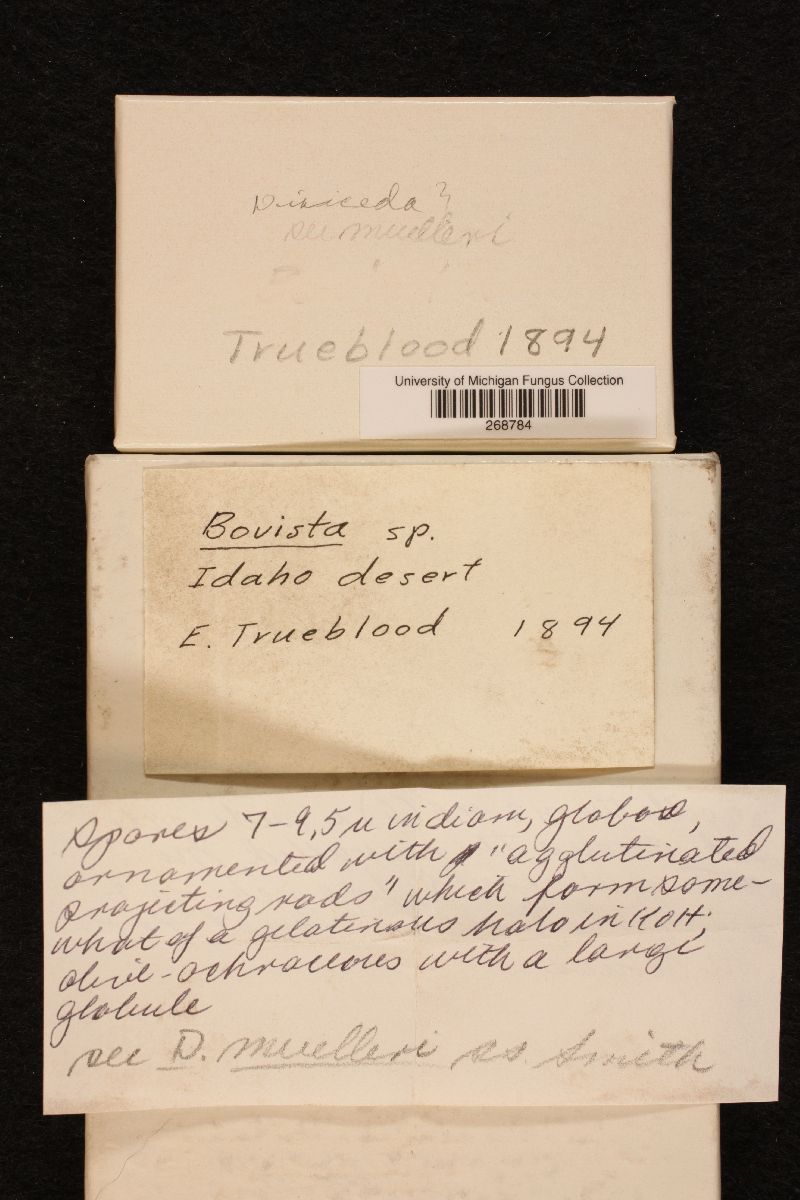 Disiceda ?
see muelleri
Trueblood 1894
University of Michigan Fungus Collection
268784
Bovista sp.
Idaho desert
E. Trueblood 1894
Spores 7-9,5 u in diam, globose,
ornamented with "agglutinated
projecting rods" which form some-
what of a gelatinous halo in KOH;
olive-ochraceous with a large
globule
see D. muelleri ss. Smith